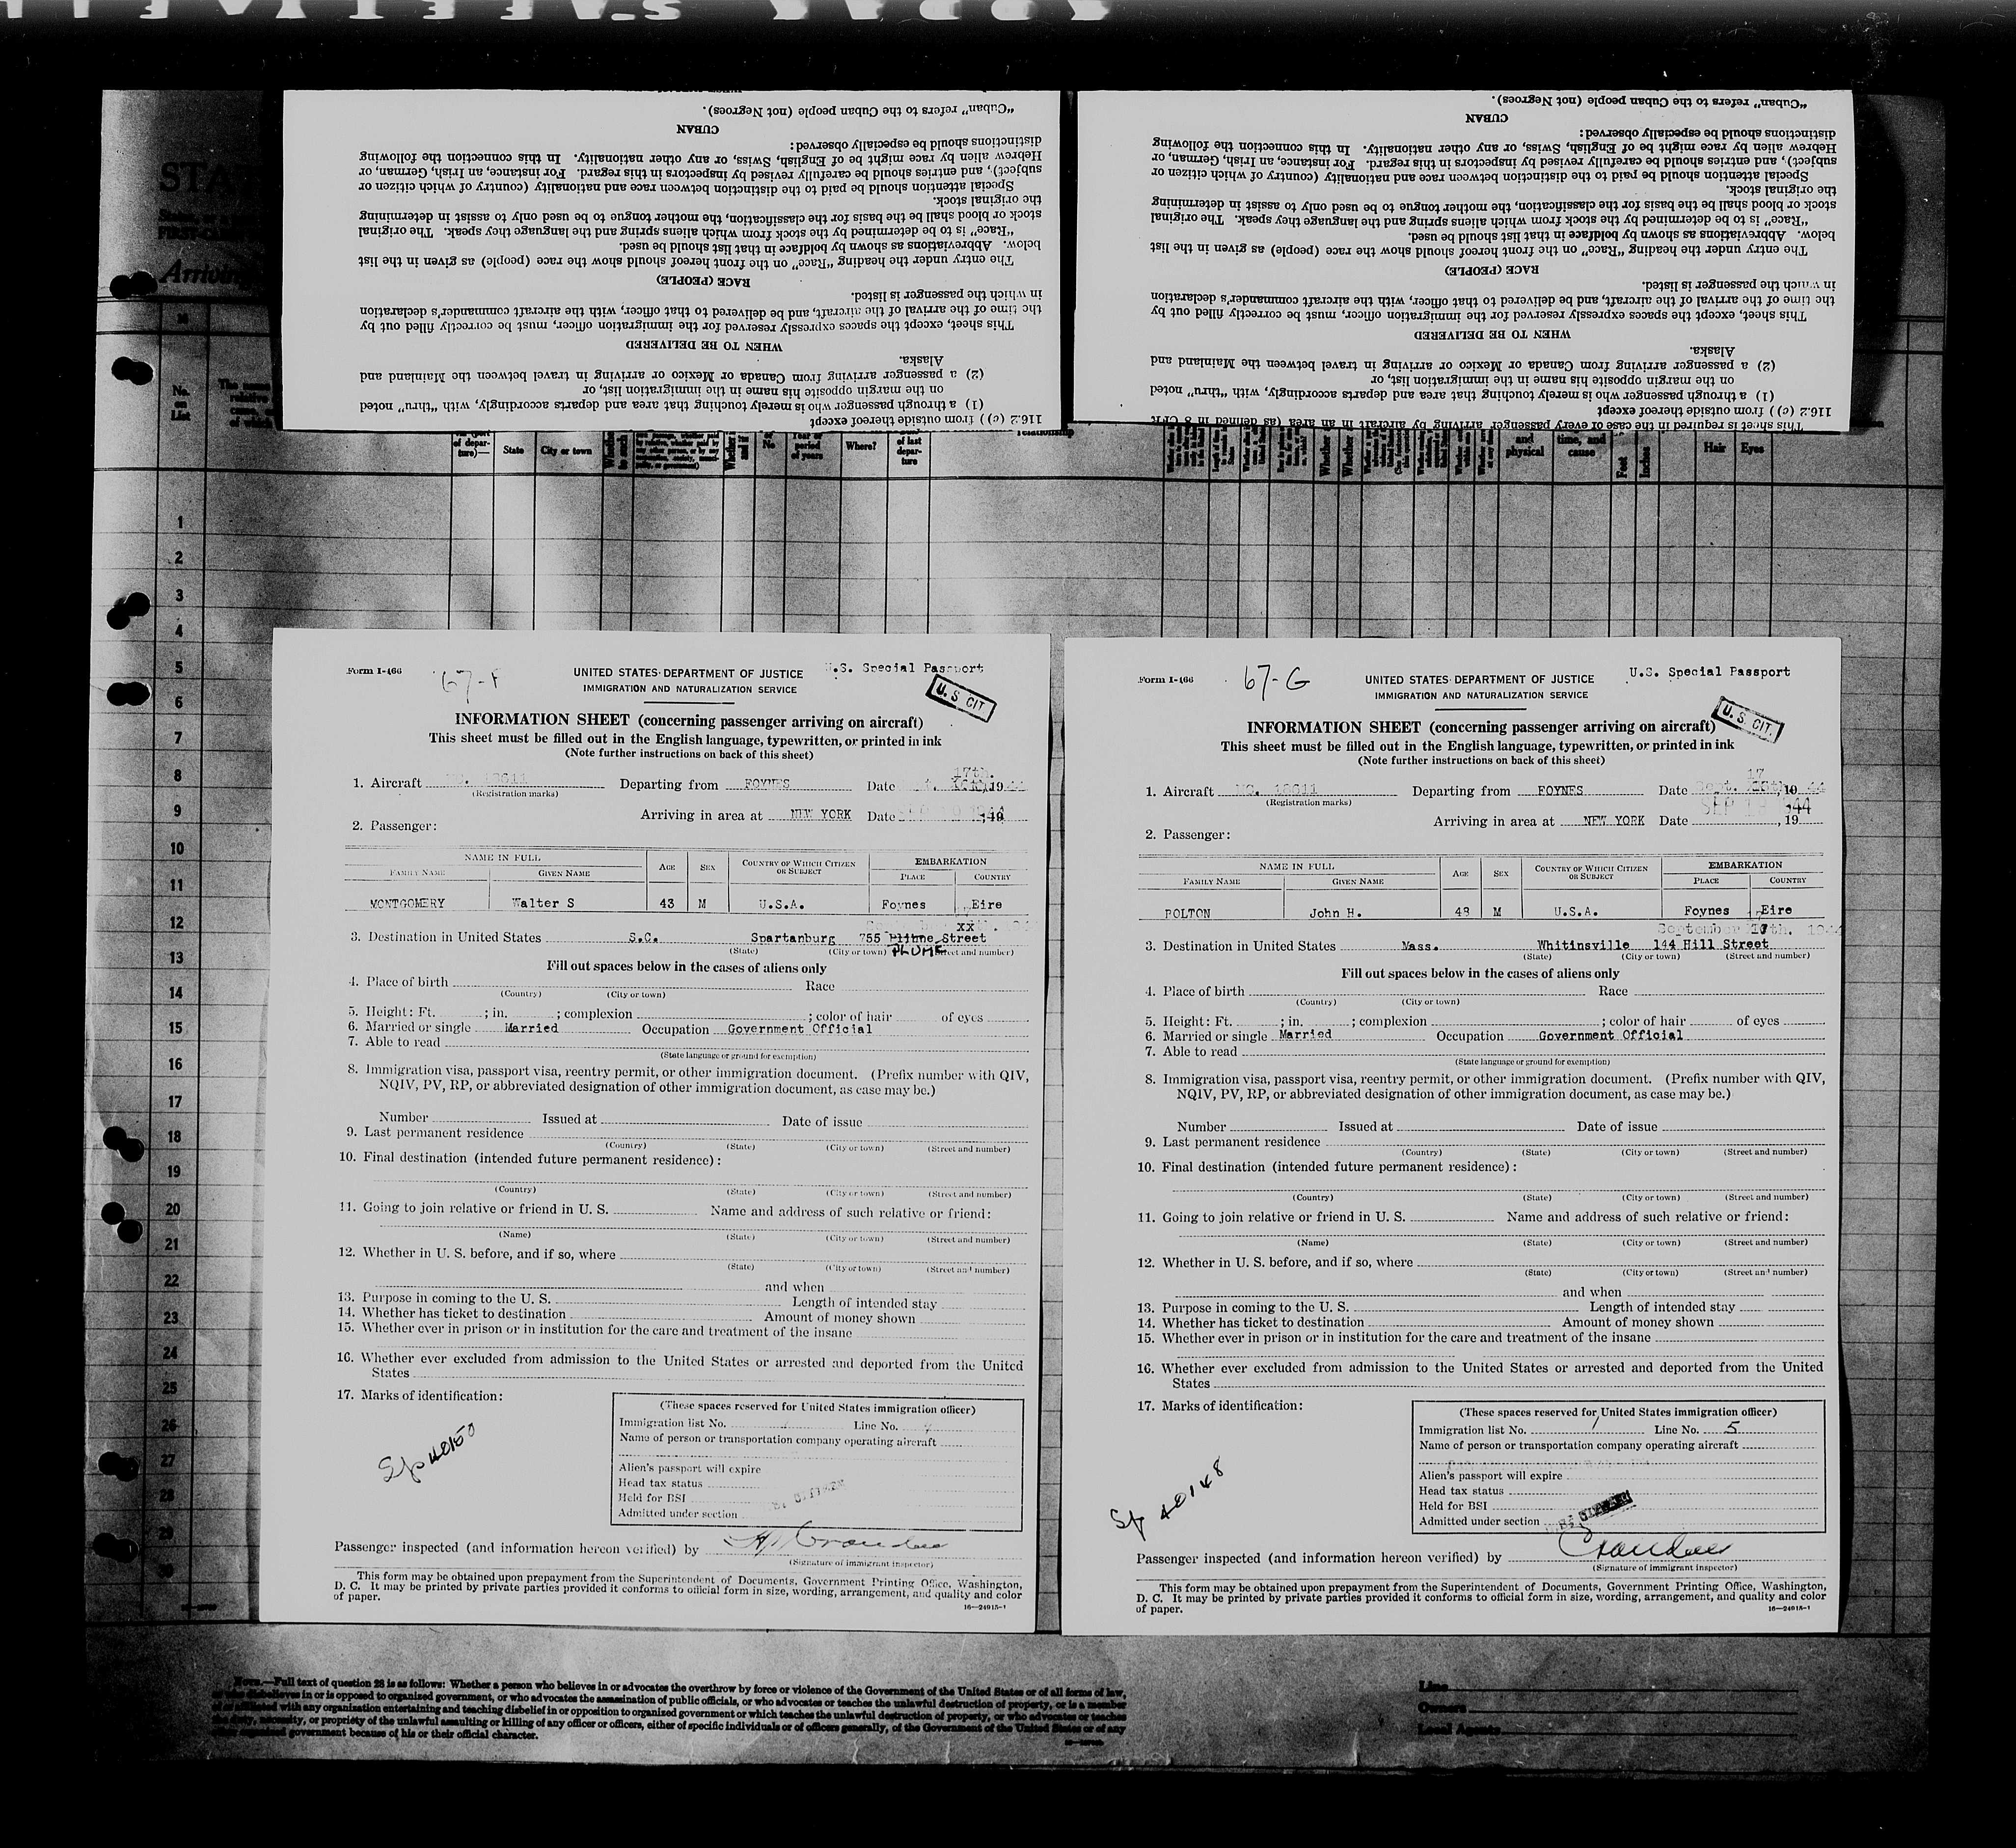 "Cuban" refers to the Cuban people (not Negroes).
CUBAN
distinctions should be especially observed:
Hebrew alien by race might be of English, Swiss, or any other nationality. In this connection the following
subject), and entries should be carefully revised by inspectors in this regard. For instance, an Irish, German, or
Special attention should be paid to the distinction between race and nationality (country of which citizen or
the original stock.
stock or blood shall be the basis for the classification, the mother tongue to be used only to assist in determining
"Race" is to be determined by the stock from which aliens spring and the language they speak. The original
below. Abbreviations as shown by boldface in that list should be used.
The entry under the heading "Race" on the front hereof should show the race (people) as given in the list
RACE (PEOPLE)
in which the passenger is listed.
the time of the arrival of the aircraft, and be delivered to that officer, with the aircraft commander's declaration
This sheet, except the spaces expressly reserved for the immigration officer, must be correctly filled out by
WHEN TO BE DELIVERED
Alaska.
(2) a passenger arriving from Canada or Mexico or arriving in travel between the Mainland and
on the margin opposite his name in the immigration list, or
(1) a through passenger who is merely touching that area and departs accordingly, with "thru" noted
116.2 (c)) from outside thereof except
"Cuban" refers to the Cuban people (not Negroes).
CUBAN
distinctions should be especially observed:
Hebrew alien by race might be of English, Swiss, or any other nationality. In this connection the following
subject), and entries should be carefully revised by inspectors in this regard. For instance, an Irish, German, or
Special attention should be paid to the distinction between race and nationality (country of which citizen or
the original stock.
stock or blood shall be the basis for the classification, the mother tongue to be used only to assist in determining
"Race" is to be determined by the stock from which aliens spring and the language they speak. The original
below. Abbreviations as shown by boldface in that list should be used.
The entry under the heading "Race" on the front hereof should show the race (people) as given in the list
RACE (PEOPLE)
in which the passenger is listed.
the time of the arrival of the aircraft, and be delivered to that officer, with the aircraft commander's declaration
This sheet, except the spaces expressly reserved for the immigration officer, must be correctly filled out by
WHEN TO BE DELIVERED
Alaska.
(2) a passenger arriving from Canada or Mexico or arriving in travel between the Mainland and
on the margin opposite his name in the immigration list, or
(1) a through passenger who is merely touching that area and departs accordingly, with "thru" noted
116.2 (c)) from outside thereof except
This sheet is required in the case of every passenger arriving by aircraft in an area (as defined in 8 CFR
Arriving
No. on List
of departure)— State City or town No Where? of last departure
and physical time, and cause Feet Inches Hair Eyes
1
2
3
4
5
6
7
8
9
10
11
12
13
14
15
16
17
18
19
20
21
22
23
24
25
26
27
28
29
30
Form I-466 67-F UNITED STATES DEPARTMENT OF JUSTICE U.S. Special Passport
IMMIGRATION AND NATURALIZATION SERVICE U. S. CIT.
INFORMATION SHEET (concerning passenger arriving on aircraft)
This sheet must be filled out in the English language, typewritten, or printed in ink
(Note further instructions on back of this sheet)
17th.
1. Aircraft NC. 18611 Departing from FOYNES Date 19
(Registration marks)
Arriving in area at NEW YORK Date 1944
2. Passenger:
NAME IN FULL AGE SEX COUNTRY OF WHICH CITIZEN OR SUBJECT EMBARKATION
FAMILY NAME GIVEN NAME PLACE COUNTRY
MONTGOMERY Walter S 43 M U.S.A. Foynes Eire
xx
3. Destination in United States S.C. Spartanburg 755 Street
(State) (City or town) PLUME (Street and number)
Fill out spaces below in the cases of aliens only
4. Place of birth Race
(Country) (City or town)
5. Height: Ft. ; in. ; complexion ; color of hair of eyes
6. Married or single Married Occupation Government Official
7. Able to read
(State language or ground for exemption)
8. Immigration visa, passport visa, reentry permit, or other immigration document. (Prefix number with QIV,
NQIV, PV, RP, or abbreviated designation of other immigration document, as case may be.)
Number Issued at Date of issue
9. Last permanent residence
(Country) (State) (City or town) (Street and number)
10. Final destination (intended future permanent residence):
(Country) (State) (City or town) (Street and number)
11. Going to join relative or friend in U. S. Name and address of such relative or friend:
(Name) (State) (City or town) (Street and number)
12. Whether in U. S. before, and if so, where
(State) (City or town) (Street and number)
and when
13. Purpose in coming to the U. S. Length of intended stay
14. Whether has ticket to destination Amount of money shown
15. Whether ever in prison or in institution for the care and treatment of the insane
16. Whether ever excluded from admission to the United States or arrested and deported from the United
States
17. Marks of identification:
Sp 40150
(These spaces reserved for United States immigration officer)
Immigration list No. Line No. 4
Name of person or transportation company operating aircraft
Alien's passport will expire
Head tax status
Held for BSI
Admitted under section
Passenger inspected (and information hereon verified) by
(Signature of immigrant inspector)
This form may be obtained upon prepayment from the Superintendent of Documents, Government Printing Office, Washington,
D. C. It may be printed by private parties provided it conforms to official form in size, wording, arrangement, and quality and color
of paper. 16—24915-1
Form I-466 67-G UNITED STATES DEPARTMENT OF JUSTICE U.S. Special Passport
IMMIGRATION AND NATURALIZATION SERVICE U. S. CIT.
INFORMATION SHEET (concerning passenger arriving on aircraft)
This sheet must be filled out in the English language, typewritten, or printed in ink
(Note further instructions on back of this sheet)
17
1. Aircraft NC. 18611 Departing from FOYNES Date Sept. 19 44
(Registration marks)
Arriving in area at NEW YORK Date SEP 19 1944, 19
2. Passenger:
NAME IN FULL AGE SEX COUNTRY OF WHICH CITIZEN OR SUBJECT EMBARKATION
FAMILY NAME GIVEN NAME PLACE COUNTRY
BOLTON John H. 48 M U.S.A. Foynes Eire
September 17th. 1944
3. Destination in United States Mass. Whitinsville 144 Hill Street
(State) (City or town) (Street and number)
Fill out spaces below in the cases of aliens only
4. Place of birth Race
(Country) (City or town)
5. Height: Ft. ; in. ; complexion ; color of hair of eyes
6. Married or single Married Occupation Government Official
7. Able to read
(State language or ground for exemption)
8. Immigration visa, passport visa, reentry permit, or other immigration document. (Prefix number with QIV,
NQIV, PV, RP, or abbreviated designation of other immigration document, as case may be.)
Number Issued at Date of issue
9. Last permanent residence
(Country) (State) (City or town) (Street and number)
10. Final destination (intended future permanent residence):
(Country) (State) (City or town) (Street and number)
11. Going to join relative or friend in U. S. Name and address of such relative or friend:
(Name) (State) (City or town) (Street and number)
12. Whether in U. S. before, and if so, where
(State) (City or town) (Street and number)
and when
13. Purpose in coming to the U. S. Length of intended stay
14. Whether has ticket to destination Amount of money shown
15. Whether ever in prison or in institution for the care and treatment of the insane
16. Whether ever excluded from admission to the United States or arrested and deported from the United
States
17. Marks of identification:
Sp 40148
(These spaces reserved for United States immigration officer)
Immigration list No. 1 Line No. 5
Name of person or transportation company operating aircraft
Alien's passport will expire
Head tax status
Held for BSI
Admitted under section
Passenger inspected (and information hereon verified) by
(Signature of immigrant inspector)
This form may be obtained upon prepayment from the Superintendent of Documents, Government Printing Office, Washington,
D. C. It may be printed by private parties provided it conforms to official form in size, wording, arrangement, and quality and color
of paper. 16—24915-1
Note.—Full text of question 28 is as follows: Whether a person who believes in or advocates the overthrow by force or violence of the Government of the United States or of all forms of law,
disbelieves in or is opposed to organized government, or who advocates the assassination of public officials, or who advocates or teaches the unlawful destruction of property, or is a member
with any organization entertaining and teaching disbelief in or opposition to organized government or which teaches the unlawful destruction of property, or who advocates or teaches
the duty, necessity, or propriety of the unlawful assaulting or killing of any officer or officers, either of specific individuals or of officers generally, of the Government of the United States or of any
organized government because of his or their official character.
Line
Owners
Local Agents